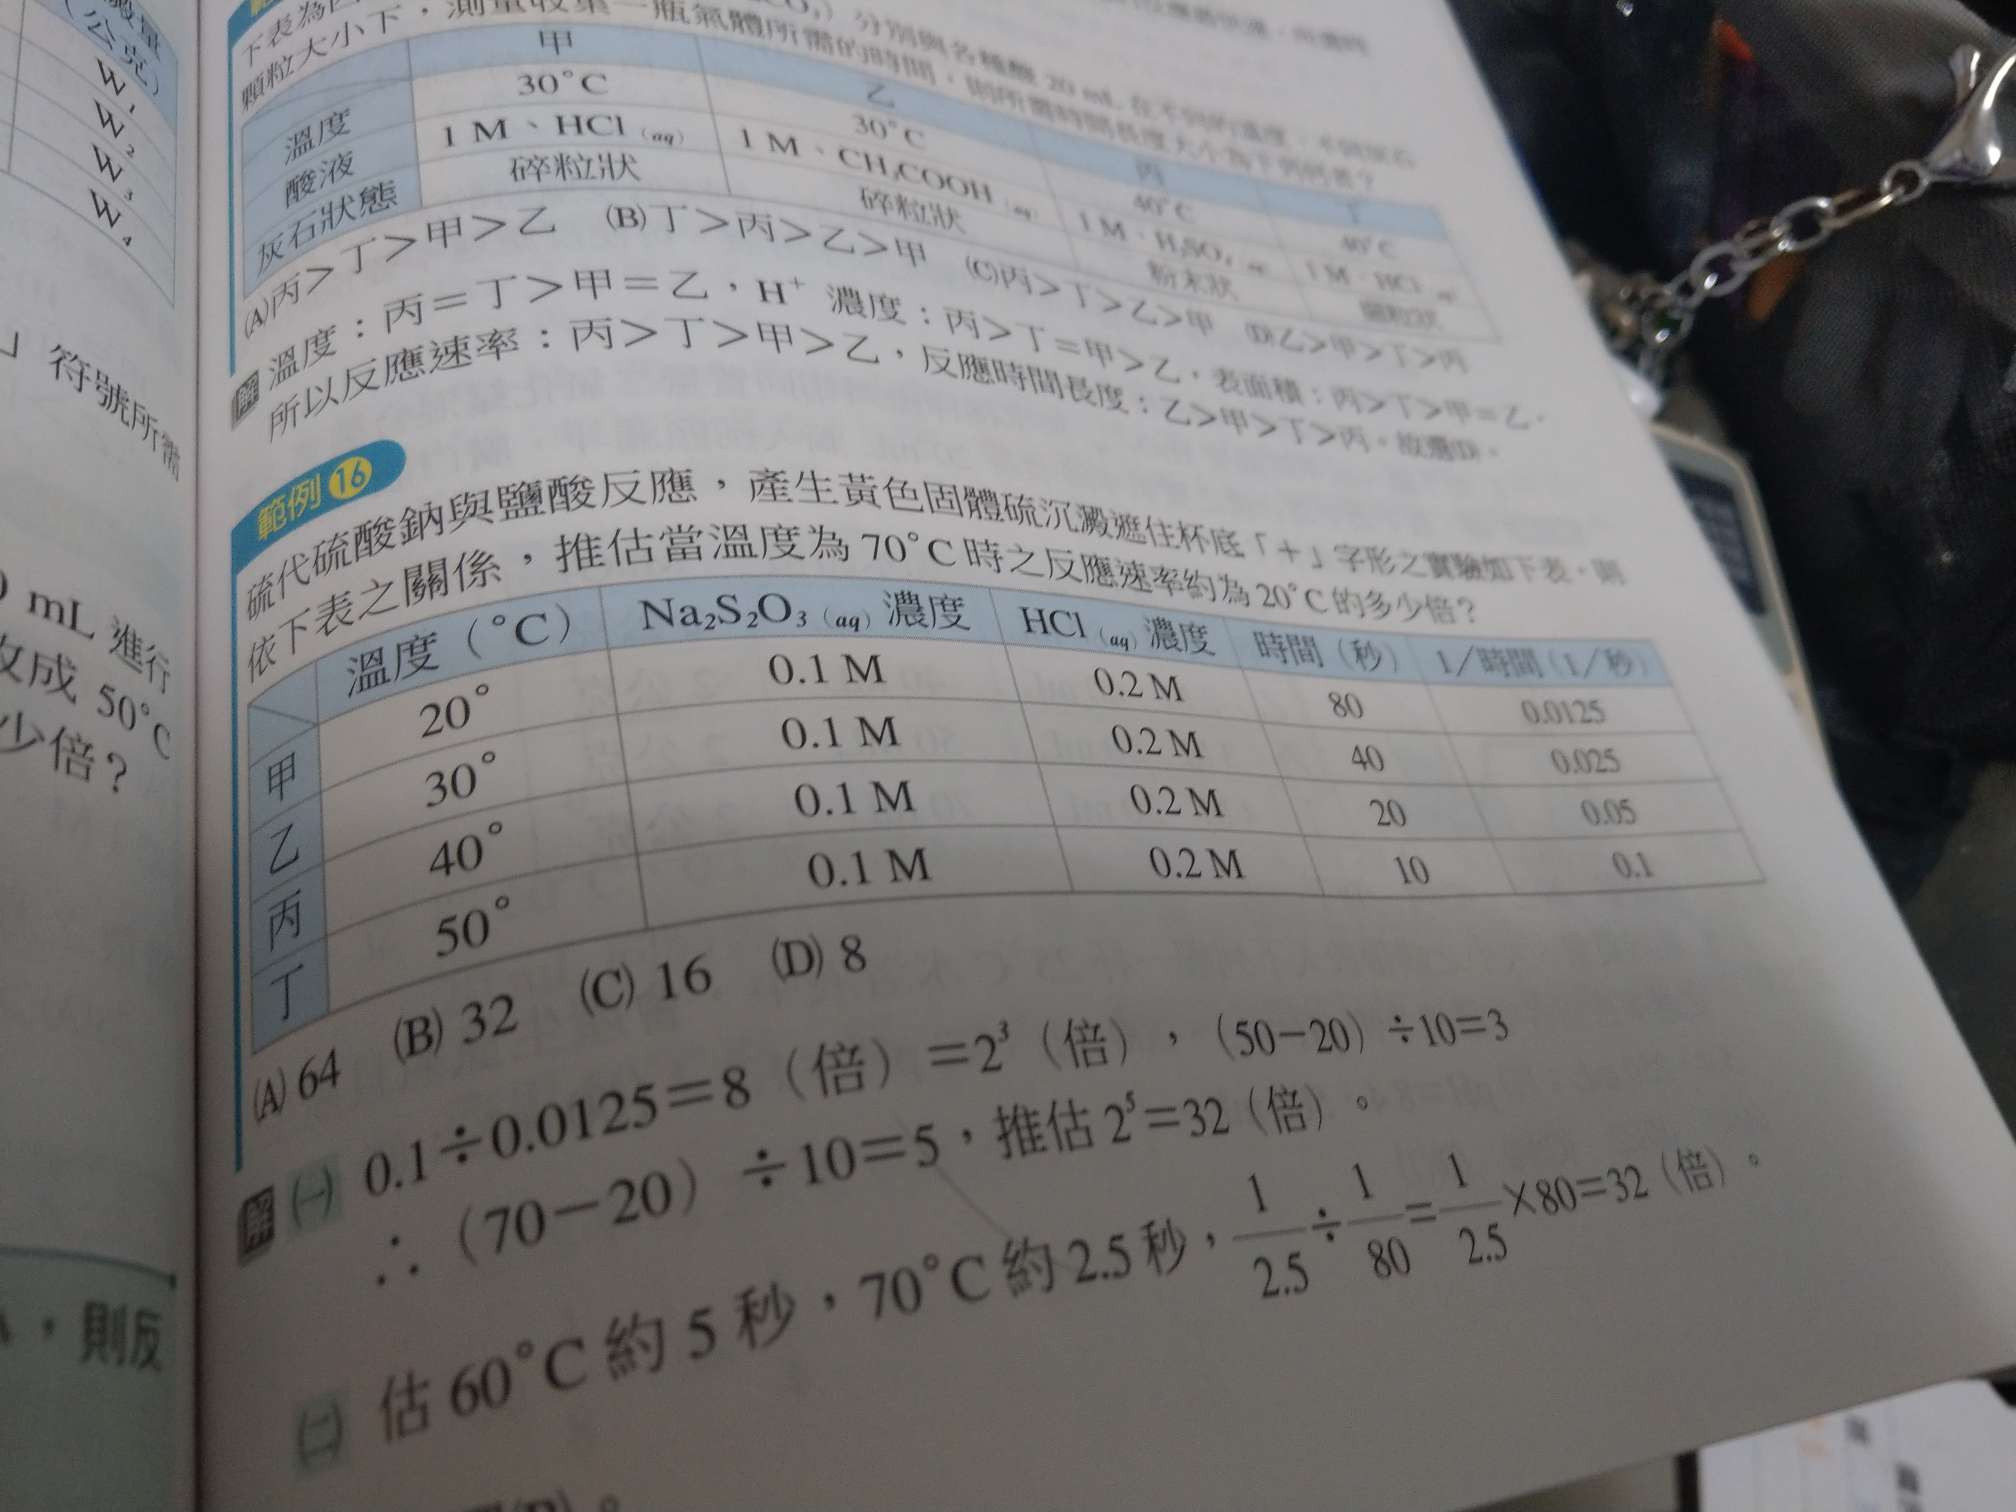 (公克)
W₁
W₂
W₃
W₄
」符號所需
mL 進行
改成 50°C
少倍?
,則反
下表為
顆粒大小下,測量收集一瓶氣體所需的時間,則所需時間長度大小為下列何者?
分別與各種酸 20 mL 在不同的溫度、
甲 乙 丙 丁
溫度 30°C 30°C 40°C 40°C
酸液 1 M、HCl(aq) 1 M、CH₃COOH(aq) 1 M、H₂SO₄(aq) 1 M、HCl(aq)
灰石狀態 碎粒狀 碎粒狀 粉末狀
(A)丙>丁>甲>乙 (B)丁>丙>乙>甲 (C)丙>丁>乙>甲 (D)乙>甲>丁>丙
解 溫度:丙=丁>甲=乙,H⁺ 濃度:丙>丁=甲>乙,表面積:丙>丁>甲=乙,
所以反應速率:丙>丁>甲>乙,反應時間長度:乙>甲>丁>丙。故選(D)。
範例 16
硫代硫酸鈉與鹽酸反應,產生黃色固體硫沉澱遮住杯底「+」字形之實驗如下表,則
依下表之關係,推估當溫度為 70°C 時之反應速率約為 20°C 的多少倍?
溫度(°C) Na₂S₂O₃(aq) 濃度 HCl(aq) 濃度 時間(秒) 1/時間(1/秒)
甲 20° 0.1 M 0.2 M 80 0.0125
乙 30° 0.1 M 0.2 M 40 0.025
丙 40° 0.1 M 0.2 M 20 0.05
丁 50° 0.1 M 0.2 M 10 0.1
(A) 64 (B) 32 (C) 16 (D) 8
解 (一) 0.1÷0.0125=8(倍)=2³(倍),(50−20)÷10=3
∴(70−20)÷10=5,推估 2⁵=32(倍)。
(二) 估 60°C 約 5 秒,70°C 約 2.5 秒,1/2.5÷1/80=1/2.5×80=32(倍)。